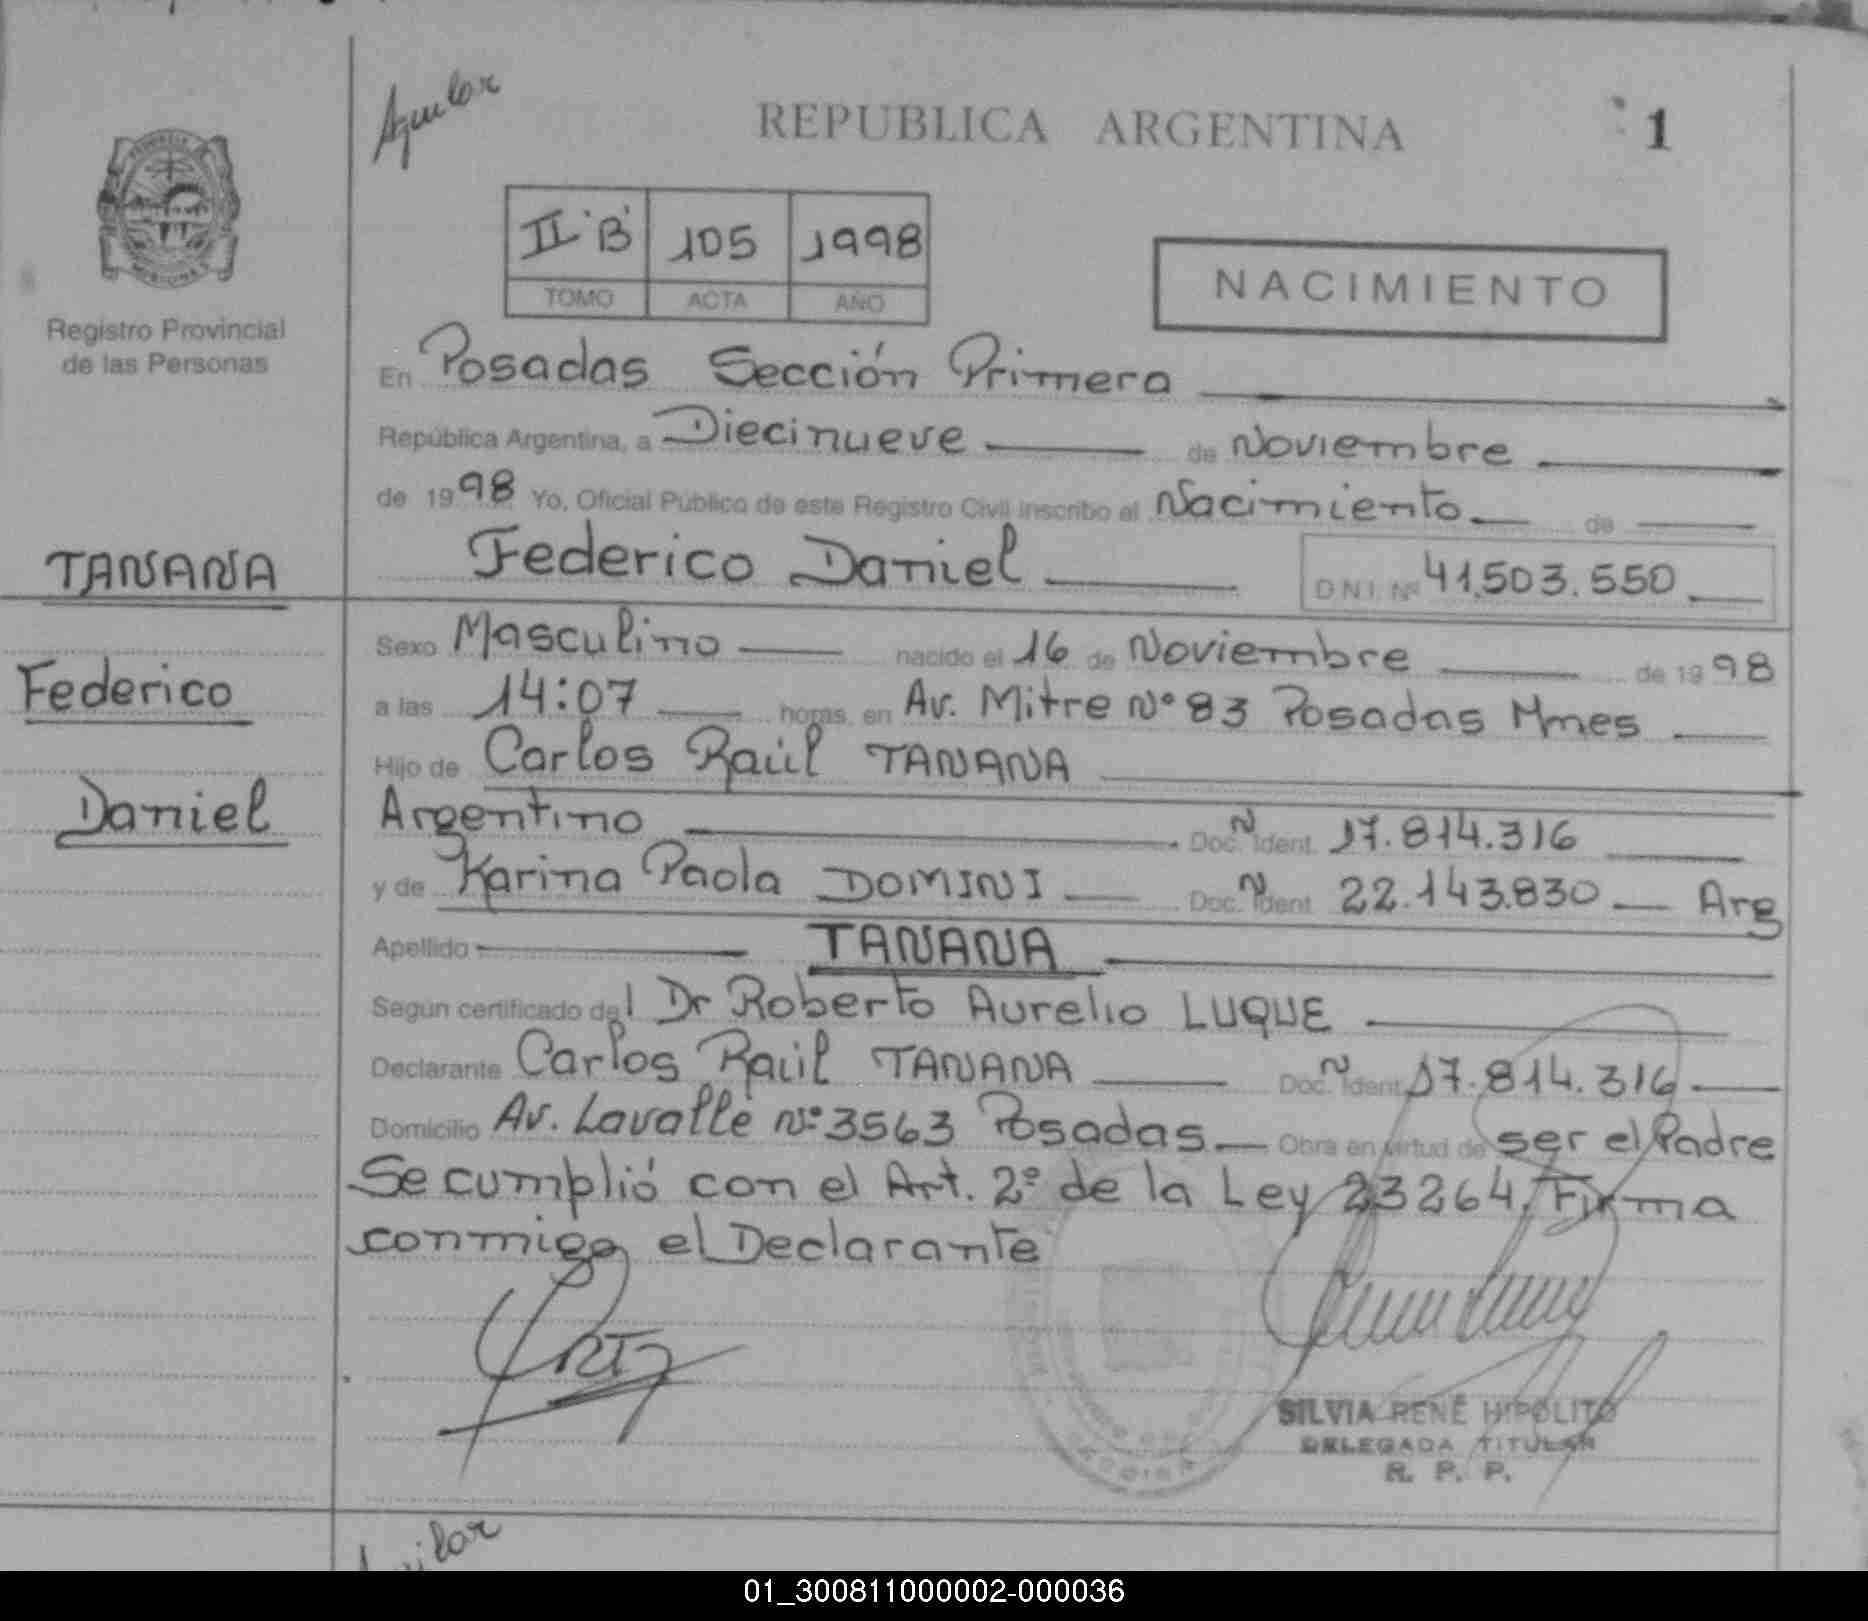 Aguilar
REPUBLICA ARGENTINA
1
II "B" 105 1998
TOMO ACTA AÑO
NACIMIENTO
Registro Provincial
de las Personas
En Posadas Sección Primera
República Argentina, a Diecinueve de Noviembre
de 1998 Yo, Oficial Público de este Registro Civil inscribo el Nacimiento de
TANANA
Federico Daniel D.N.I. Nº 41.503.550
Sexo Masculino nacido el 16 de Noviembre de 1998
Federico
a las 14:07 horas, en Av. Mitre Nº 83 Posadas Mnes
Hijo de Carlos Raúl TANANA
Daniel
Argentino Doc. N Ident. 17.814.316
y de Karina Paola DOMINI Doc. N Ident 22.143.830 Arg
Apellido TANANA
Según certificado del Dr Roberto Aurelio LUQUE
Declarante Carlos Raúl TANANA Doc. N Ident. 17.814.316
Domicilio Av. Lavalle Nº 3563 Posadas Obra en virtud de ser el Padre
Se cumplió con el Art. 2º de la Ley 23264. Firma
conmigo el Declarante
SILVIA RENÉ HIPOLITO
DELEGADA TITULAR
R. P. P.
Aguilar
01_300811000002-000036